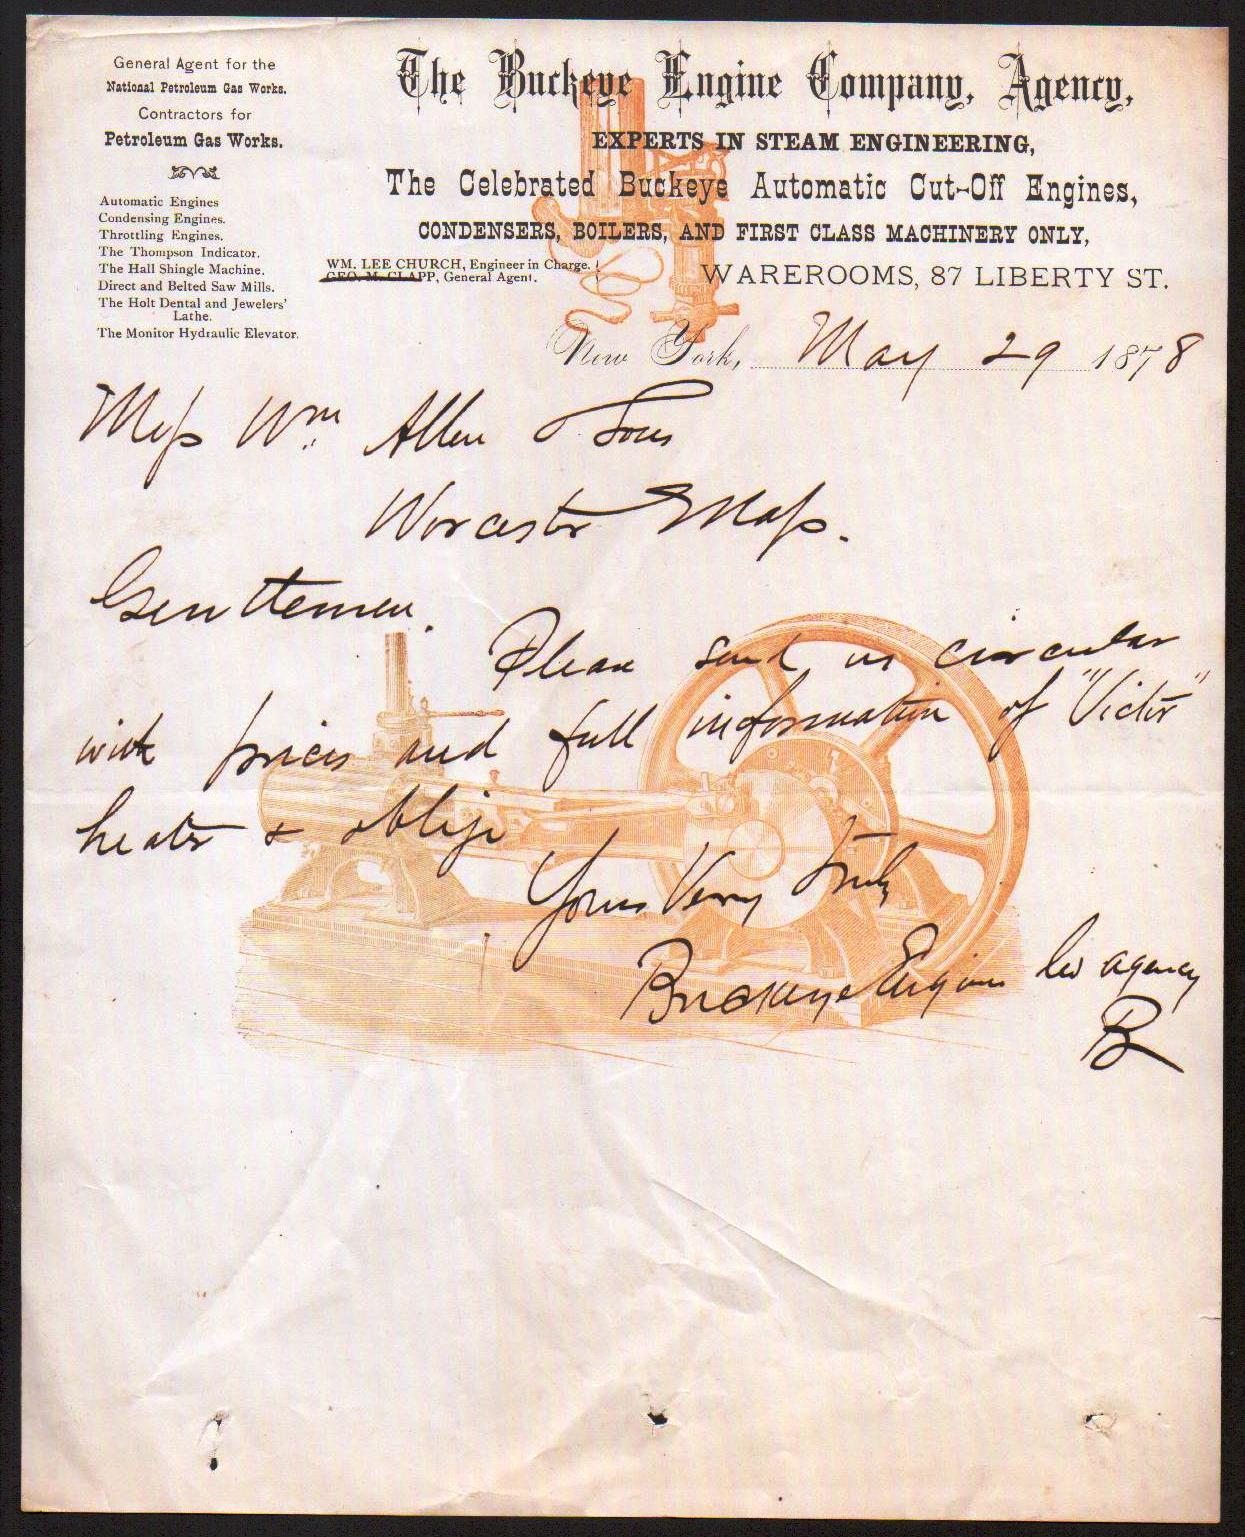 General Agent for the
National Petroleum Gas Works.
Contractors for
Petroleum Gas Works.
Automatic Engines
Condensing Engines.
Throttling Engines.
The Thompson Indicator.
The Hall Shingle Machine.
Direct and Belted Saw Mills.
The Holt Dental and Jewelers'
Lathe.
The Monitor Hydraulic Elevator.
The Buckeye Engine Company, Agency,
EXPERTS IN STEAM ENGINEERING,
The Celebrated Buckeye Automatic Cut-Off Engines,
CONDENSERS, BOILERS, AND FIRST CLASS MACHINERY ONLY,
WM. LEE CHURCH, Engineer in Charge.
GEO. M. CLAPP, General Agent.
WAREROOMS, 87 LIBERTY ST.
New York, May 29 1878
Mess Wm Allen & Sons
Worcester Mass.
Gentlemen.
Please send us circular
with prices and full information of "Victor"
heater & oblige
Yours Very Truly
Buckeye Engine Co agency
B